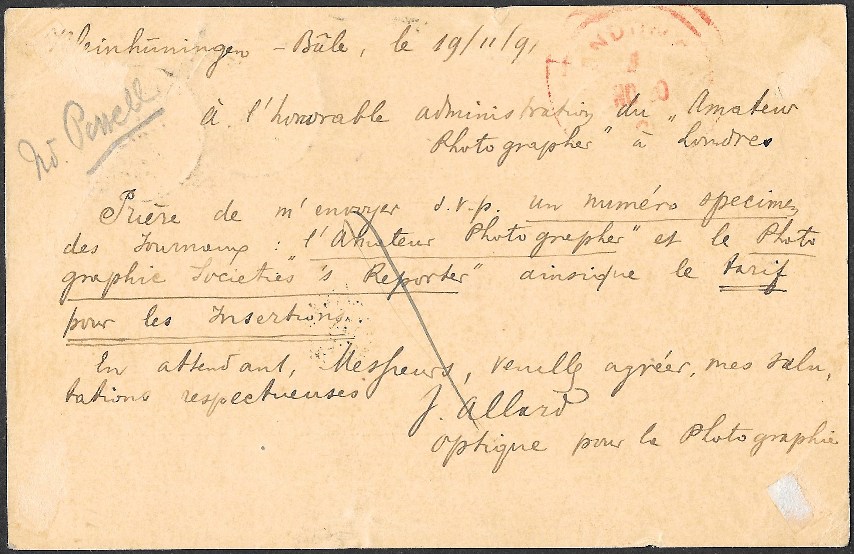 Kleinhüningen - Bâle, le 19/11/91
LONDON
NO 20
No. Powell
à l'honorable administration du „Amateur
Photographer" à Londres
Prière de m'envoyer s.v.p. un numéro specimen
des Journaux : l'Amateur Photographer" et le Photo
graphic Societies"s Reporter" ainsique le tarif
pour les Insertions.
En attendant, Messieurs, veuillz agréer, mes salu,
tations respectueuses
J. Allard
Optique pour la Photographie